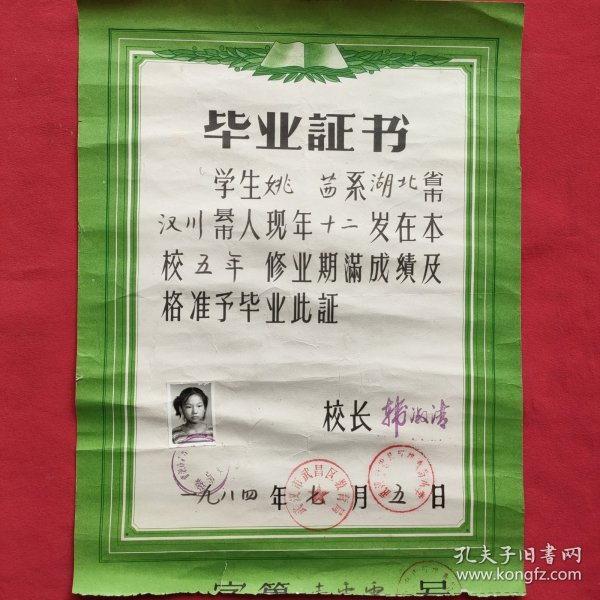 毕业証书
学生姚茁系湖北省市
汉川县市人现年十二岁在本
校五年 修业期滿成績及
格准予毕业此証
校长 韩淑清
一九八四年七月五日
武汉市武昌区教育局
字第 号
孔夫子旧书网
www.kongfz.com